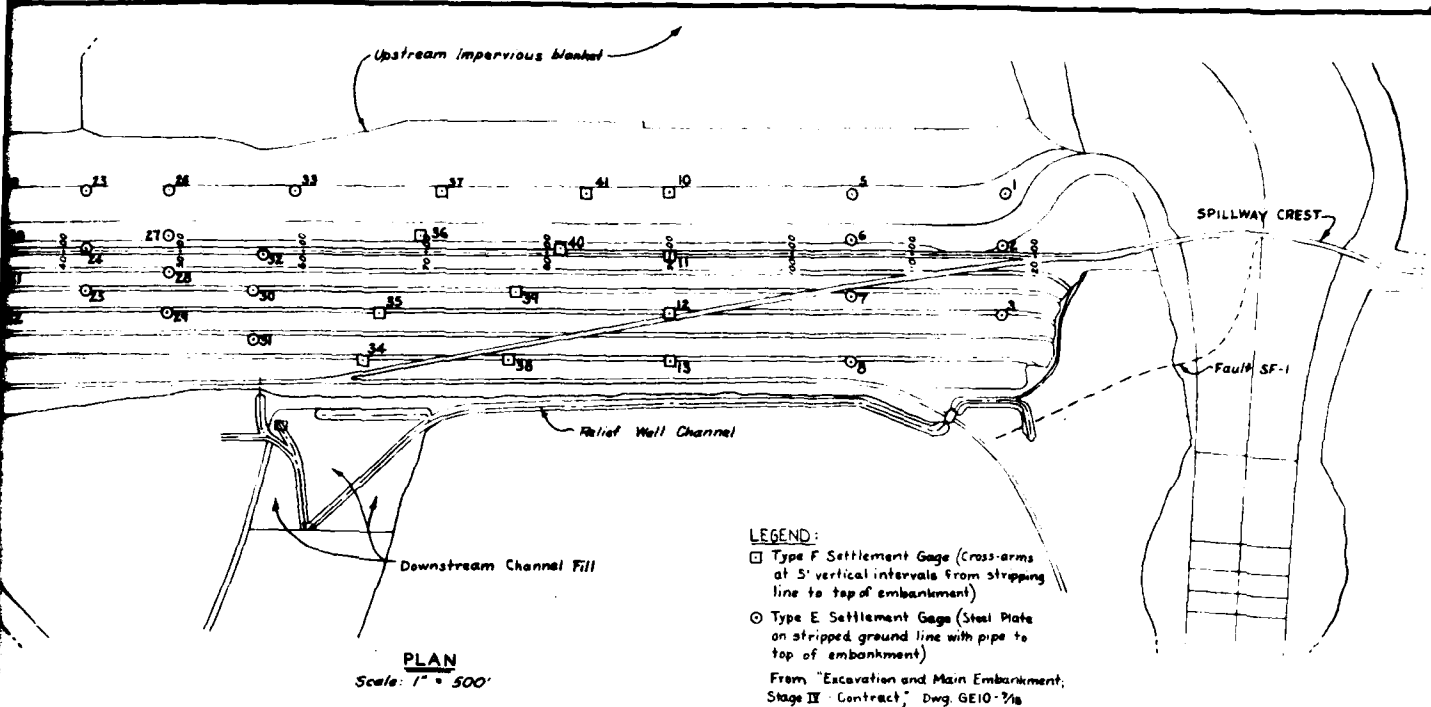 Upstream Impervious blanket
23 26 33 37 41 10 5 1
SPILLWAY CREST
27 36 40 6 2
24 32 11
28
23 30 39 7
29 35 12 3
31
34 38 13 8
Fault SF-1
Relief Well Channel
Downstream Channel Fill
LEGEND:
Type F Settlement Gage (Cross-arms
at 5' vertical intervals from stripping
line to top of embankment)
Type E Settlement Gage (Steel Plate
on stripped ground line with pipe to
top of embankment)
From "Excavation and Main Embankment;
Stage IV Contract," Dwg. GE10-
PLAN
Scale: 1" = 500'